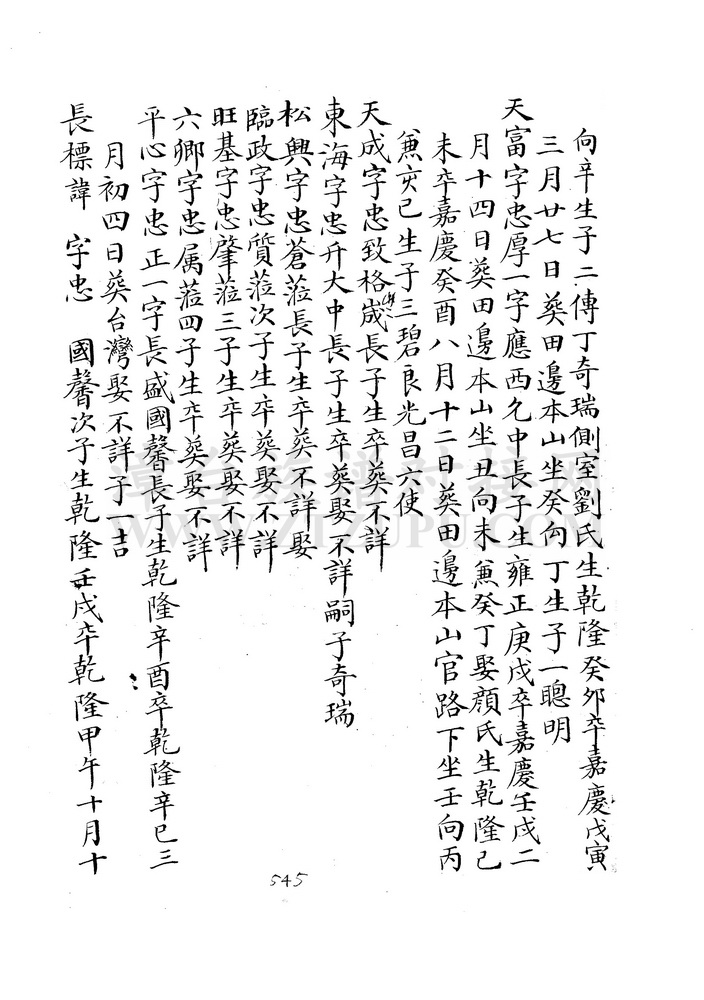 向辛生子二傳丁奇瑞側室劉氏生乾隆癸夘卒嘉慶戊寅
三月廿七日葵田邊本山坐癸向丁生子一聰明
天富字忠厚一字應西允中長子生雍正庚戌卒嘉慶壬戌二
月十四日葵田邊本山坐丑向未兼癸丁娶顔氏生乾隆己
未卒嘉慶癸酉八月十二日葵田邊本山官路下坐壬向丙
兼亥己生子三碧良光昌六使
天成字忠致格嵗長子生卒葵不詳
東海字忠升大中長子生卒葵娶不詳嗣子奇瑞
松興字忠蒼蒞長子生卒葵不詳娶
臨政字忠質蒞次子生卒葵娶不詳
旺基字忠肇蒞三子生卒葵娶不詳
六卿字忠属蒞四子生卒葵娶不詳
平心字忠正一字長盛國馨長子生乾隆辛酉卒乾隆辛巳三
月初四日葵台灣娶不詳子一吉
長標諱 字忠 國馨次子生乾隆壬戌卒乾隆甲午十月十
545
WWW.ZTZUPU.COM